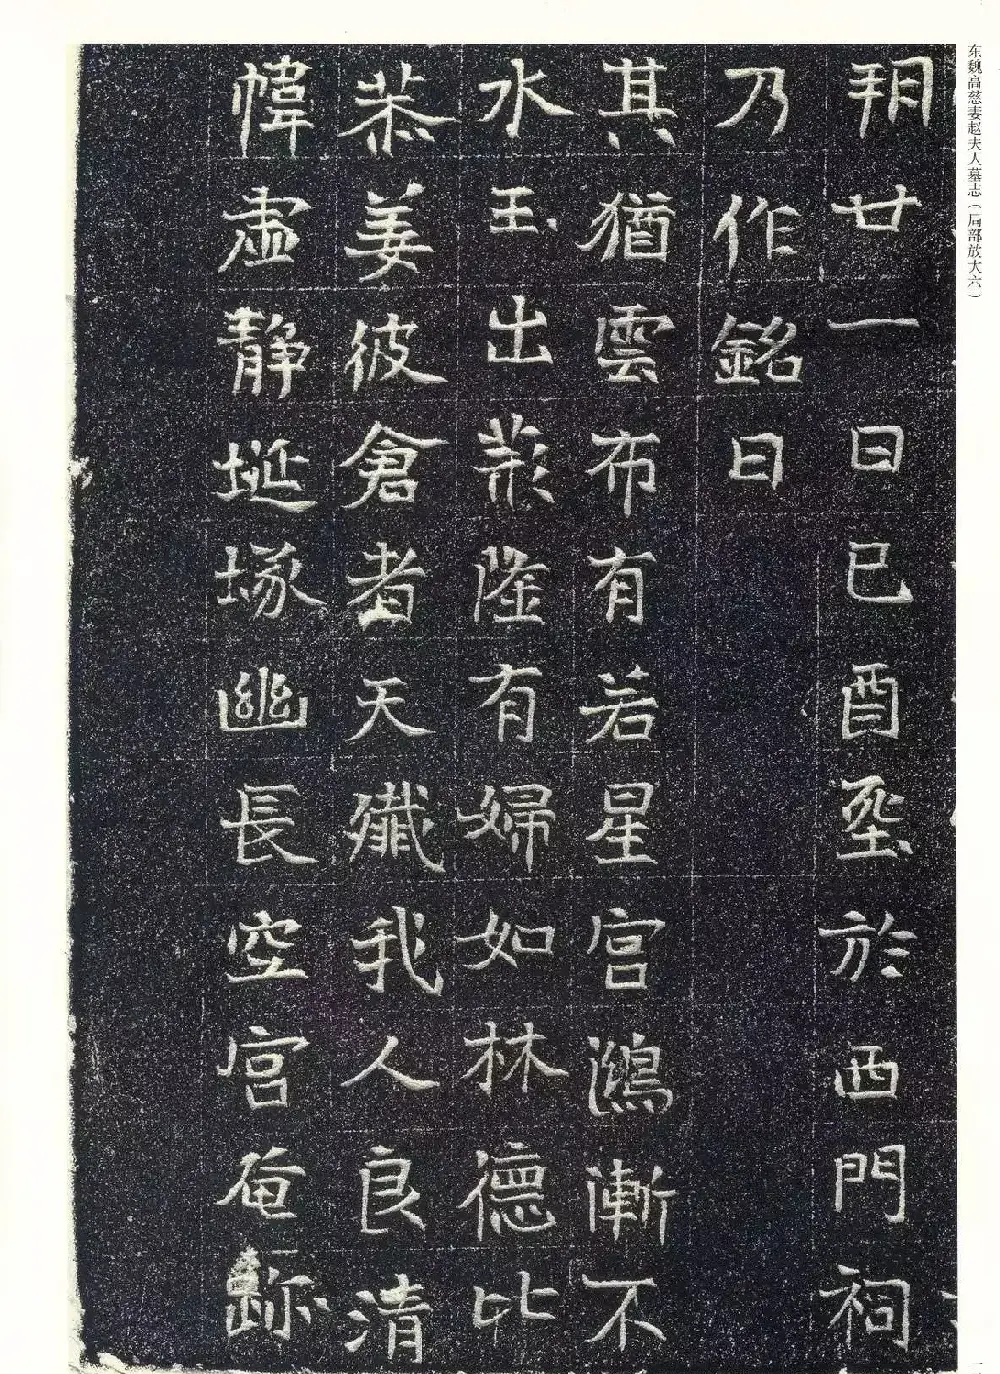 东魏高慈妻赵夫人墓志（局部放大六）
朔廿一日己酉於西門祠
乃作銘曰
其猶雲布有若星宫鴻漸不
水玉出荊隆有婦如林德比
恭姜彼倉者天殲我人良清
幃虛靜埏塚幽長空宫奄跡